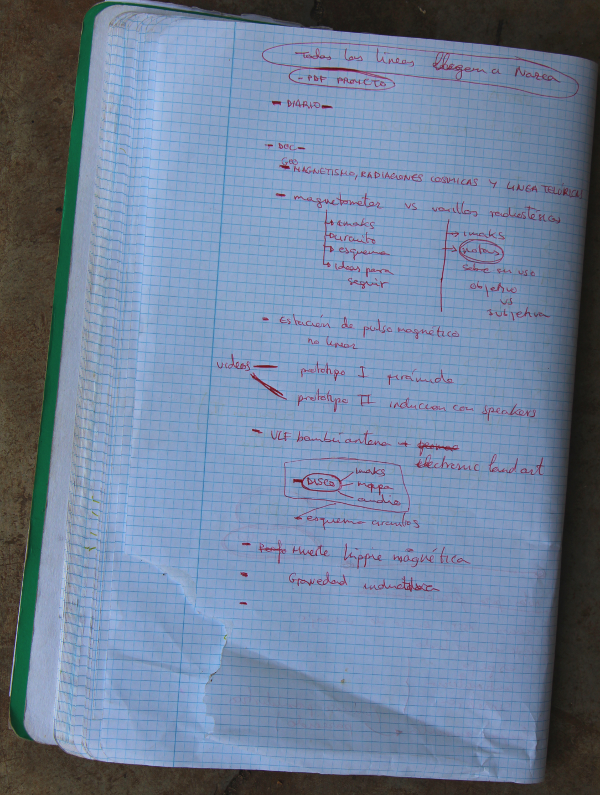 Todas las lineas llegan a Nazca
- PDF PROYECTO
- DIARIO -
- DOC -
GEO
- MAGNETISMO, RADIACIONES COSMICAS Y LINEA TELURICAS
- magnetometer vs varillas radiestesicas
→ imaks
→ imaks
→ circuito
→ esquema
sobre su uso
→ ideas para
seguir
objetivo
vs
subjetivo
- Estación de pulso magnético
no linear
videos — prototipo I piramide
prototipo II induccion con speakers
- VLF bambu antena +
electronic land art
- DISCO
imaks
mapa
audio
- esquema circuitos
- Muerte hippie magnética
- Gravedad
-